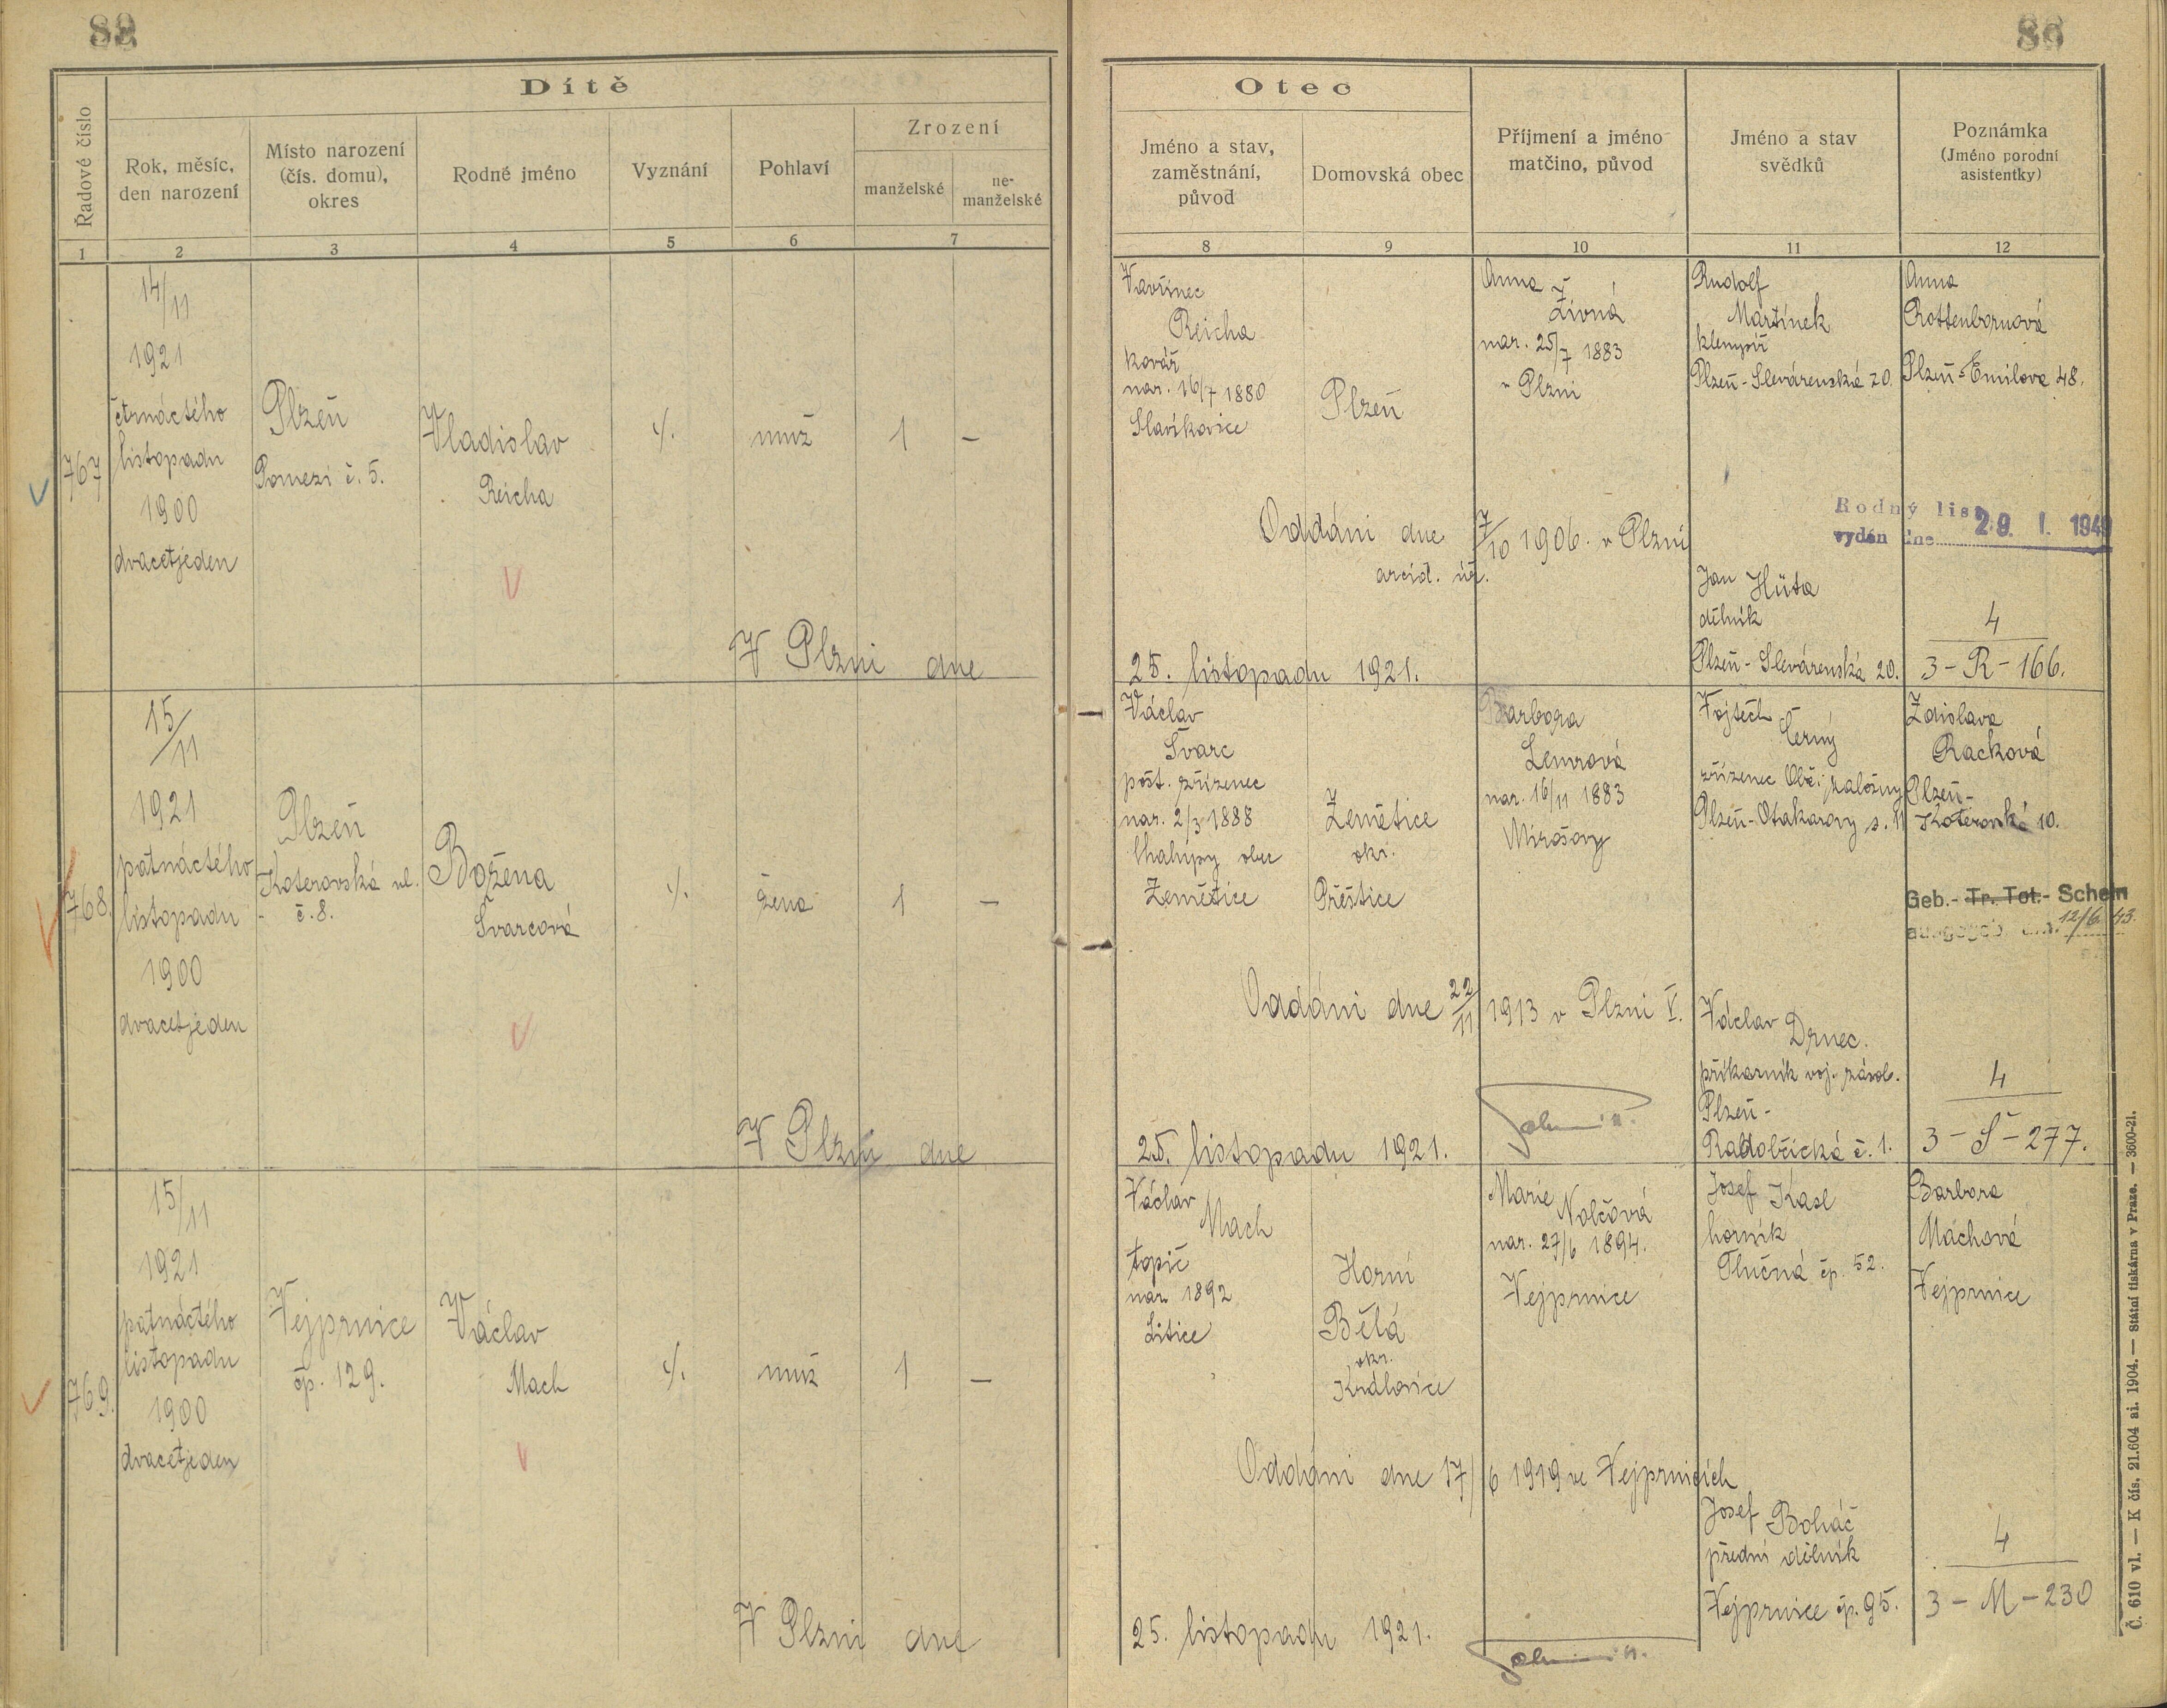 82
86
Dítě
Řadové číslo
Rok, měsíc,
den narození
Místo narození
(čís. domu),
okres
Rodné jméno
Vyznání
Pohlaví
Zrození
manželské
ne-
manželské
1
2
3
4
5
6
7
Otec
Jméno a stav,
zaměstnání,
původ
Domovská obec
Příjmení a jméno
matčino, původ
Jméno a stav
svědků
Poznámka
(Jméno porodní
asistentky)
8
9
10
11
12
767
14/11
1921
čtrnáctého
listopadu
1900
dvacetjeden
Plzeň
Pomezí č. 5.
Vladislav
Reicha
muž
1
–
V Plzni dne
Vavřinec
Reicha
kovář
nar. 16/7 1880
Slavíkovice
Plzeň
Anna
Živná
nar. 25/7 1883
v Plzni
Rudolf
Martínek
klempíř
Plzeň-Slevárenská 20.
Anna
Rottenbornová
Plzeň-Emilova 48.
Oddáni dne 7/10 1906. v Plzni
arcid. úř.
Rodný list
vydán dne 29. I. 1949
Jan Hüta
dělník
Plzeň-Slevárenská 20.
4
3-R-166.
25. listopadu 1921.
768.
15/11
1921
patnáctého
listopadu
1900
dvacetjeden
Plzeň
Koterovská ul.
č. 8.
Božena
Švarcová
žena
1
–
V Plzni dne
Václav
Švarc
pošt. zřízenec
nar. 2/3 1888
Chalupy obec
Zemětice
Zemětice
okr.
Přeštice
Barbora
Lemrová
nar. 16/11 1883
Mirošovy
Vojtěch
Černý
zřízenec Obč. záložny
Plzeň-Otakarovy s. 11
Zdislava
Racková
Plzeň-
Koterovská 10.
Geb.- Tr. Tot.- Schein
ausgegeb. am 12/6 43.
Oddáni dne 22/11 1913 v Plzni V.
Václav Drnec.
příkazník voj. zásob.
Plzeň-
Radobčická č. 1.
4
3-Š-277.
25. listopadu 1921.
769.
15/11
1921
patnáctého
listopadu
1900
dvacetjeden
Vejprnice
čp. 129.
Václav
Mach
muž
1
–
V Plzni dne
Václav
Mach
topič
nar. 1892
Litice
Horní
Bělá
okr.
Královice
Marie
Nolčová
nar. 27/6 1894.
Vejprnice
Josef Kasl
horník
Tlučná čp. 52.
Barbora
Machová
Vejprnice
Oddáni dne 17/6 1919 ve Vejprnicích
Josef Boháč
přední dělník
Vejprnice čp. 95.
4
3-M-230
25. listopadu 1921.
Č. 610 vl. — K čís. 21.604 ai. 1904. — Státní tiskárna v Praze. — 3600-21.